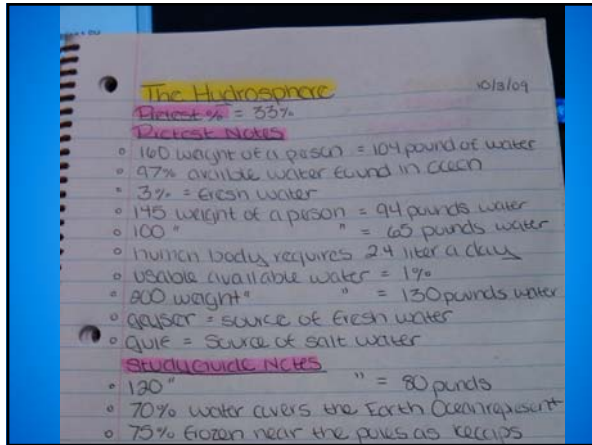 The Hydrosphere 10/3/09
Pretest % = 33%
Pretest Notes
◦ 160 weight of a person = 104 pound of water
◦ 97% availble water found in ocean
◦ 3% = fresh water
◦ 145 weight of a person = 94 pounds water
◦ 100 " " = 65 pounds water
◦ human body requires 2.4 liter a day
◦ usable available water = 1%
◦ 200 weight " " = 130 pounds water
◦ geyser = source of fresh water
◦ gulf = source of salt water
Studyguide Notes
◦ 120 " " = 80 punds
◦ 70% water cuvers the Earth Ocean represent
◦ 75% frozen near the poles as icecaps